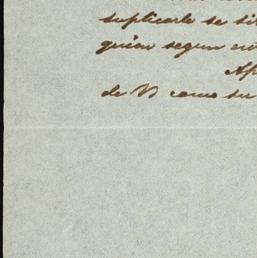 suplicarle se si
quian segun
Ap
de V como su